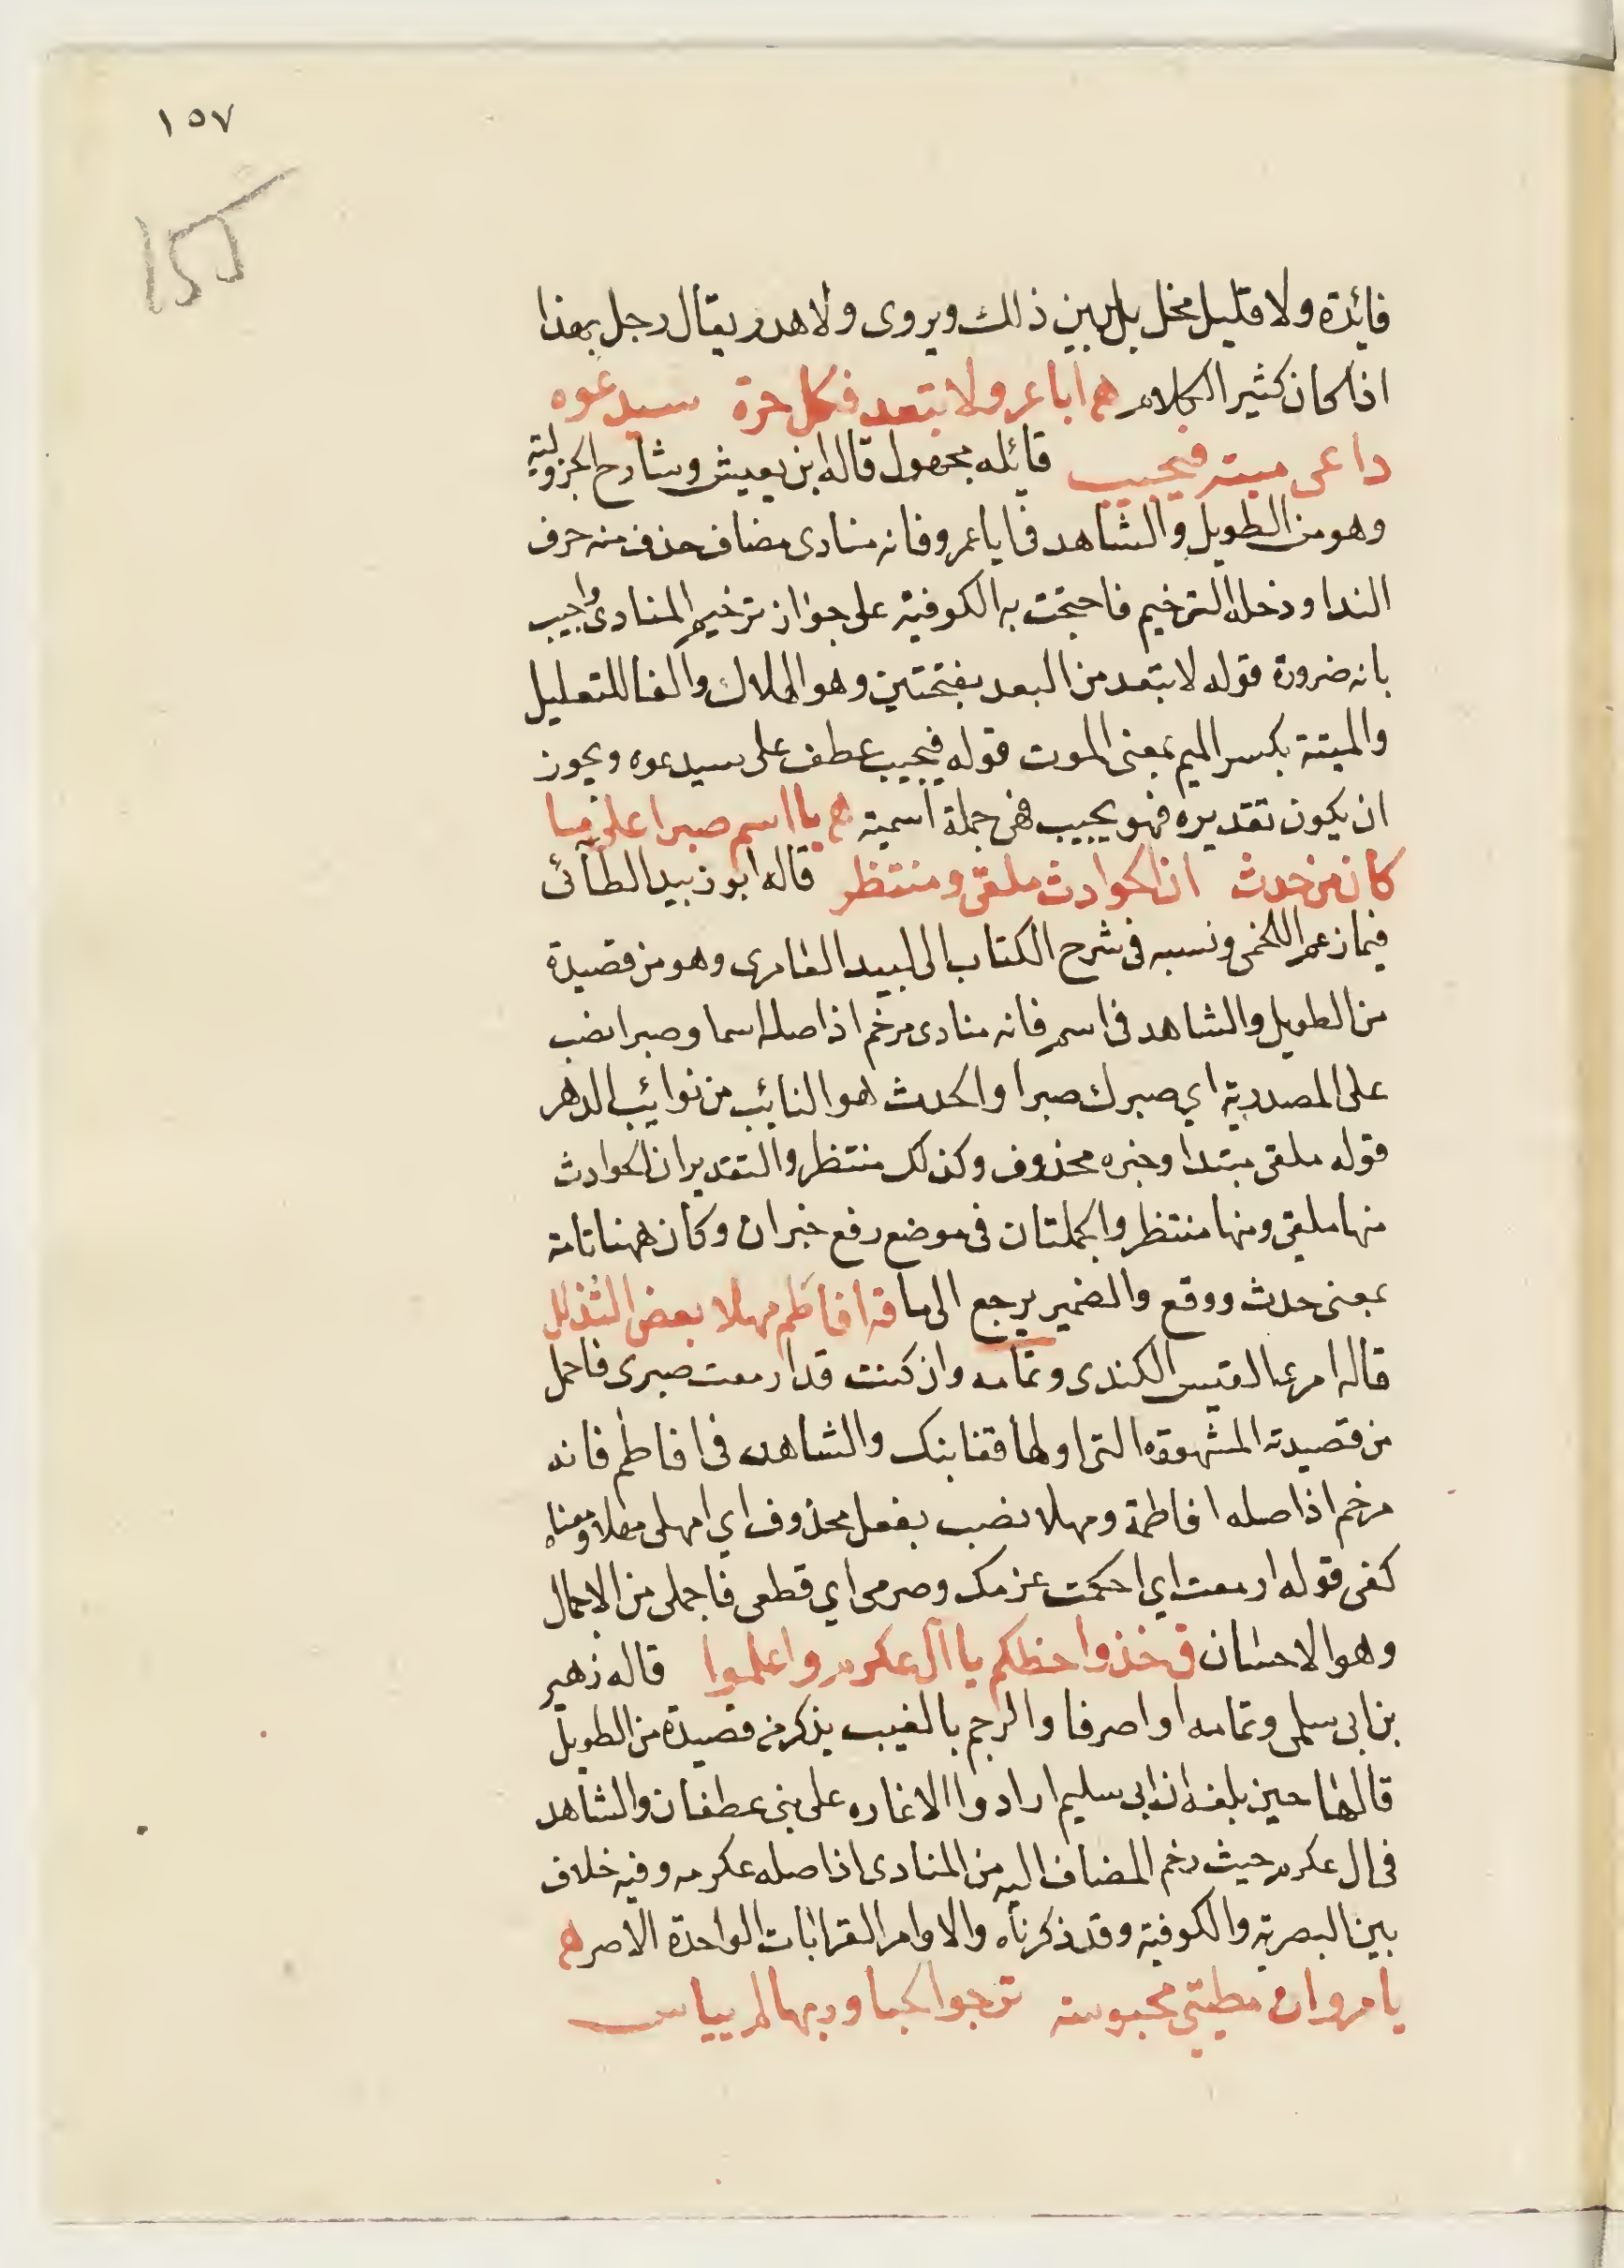 ١٥٧
١٥٦
فائدة ولا قليل مخل بل بين ذلك ويروى ولا هدر يقال رجل بهذا
اذا كان كثير الكلام ه ابا عرو لا تبعد فكل حرة سيدعوه
داعى ميتة فيجيب قائله مجهول قاله ابن يعيش وشارح الجزولية
وهو من الطويل والشاهد فى ايا عمرو فانه منادى مضاف حذف منه حرف
الندا ودخله الترخيم فاحتجت به الكوفية على جواز ترخيم المنادى واجيب
بانه ضرورة قوله لا تبعد من البعد بفتحتين وهو الهلاك والفا للتعليل
والميتة بكسر الميم بمعنى الموت قوله فيجيب عطف على سيدعوه ويجوز
ان يكون تقديره فهو يجيب فهى جملة اسمية ه يا اسم صبرا على ما
كان من حدث ان الحوادث ملقى ومنتظر قاله ابو زبيد الطآئى
فيما زعم اللخمى ونسبه فى شرح الكتاب الى لبيد العامرى وهو من قصيدة
من الطويل والشاهد فى اسم فانه منادى مرخم اذ اصله اسما وصبرا نصب
على المصدرية اي صبرك صبرا والحدث هو النائب من نوائب الدهر
قوله ملقى مبتدا وخبره محذوف وكذلك منتظر والتقدير ان الحوادث
منها ملقى ومنها منتظر والجملتان فى موضع رفع خبر ان وكان ههنا تامة
بمعنى حدث ووقع والضمير يرجع الى ما قه افاطم مهلا بعض التذلل
قاله امرء القيس الكندى وتمامه وان كنت قد ازمعت صرمى فاجمل
من قصيدته المشهورة التى اولها قفا نبك والشاهد فى افاطم فانه
مرخم اذ اصله افاطمة ومهلا نصب بفعل محذوف اي امهلى مهلا ومعناه
كفى قوله ازمعت اي احكمت عزمك وصرمى اي قطعى فاجملى من الاجمال
وهو الاحسان ق خذوا حظكم يا آل عكرم واعلموا قاله زهير
بن ابى سلمى وتمامه اواصرفا والرحم بالغيب يذكر من قصيدة من الطويل
قالها حين بلغه ان ابى سليم ارادوا الاغاره على بنى عطفان والشاهد
فى ال عكرم حيث رخم المضاف اليه من المنادى اذ اصله عكرمه وفيه خلاف
بين البصرية والكوفية وقد ذكرناه والاوامر القرابات الواحدة الاصر ه
يا مروان مطيتى محبوسة ترجوا الحبا وربها لم يياس